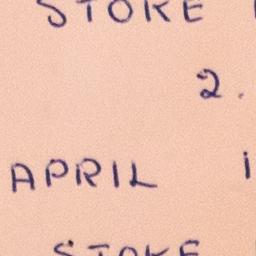 STOKE
2.
APRIL i
STOKE